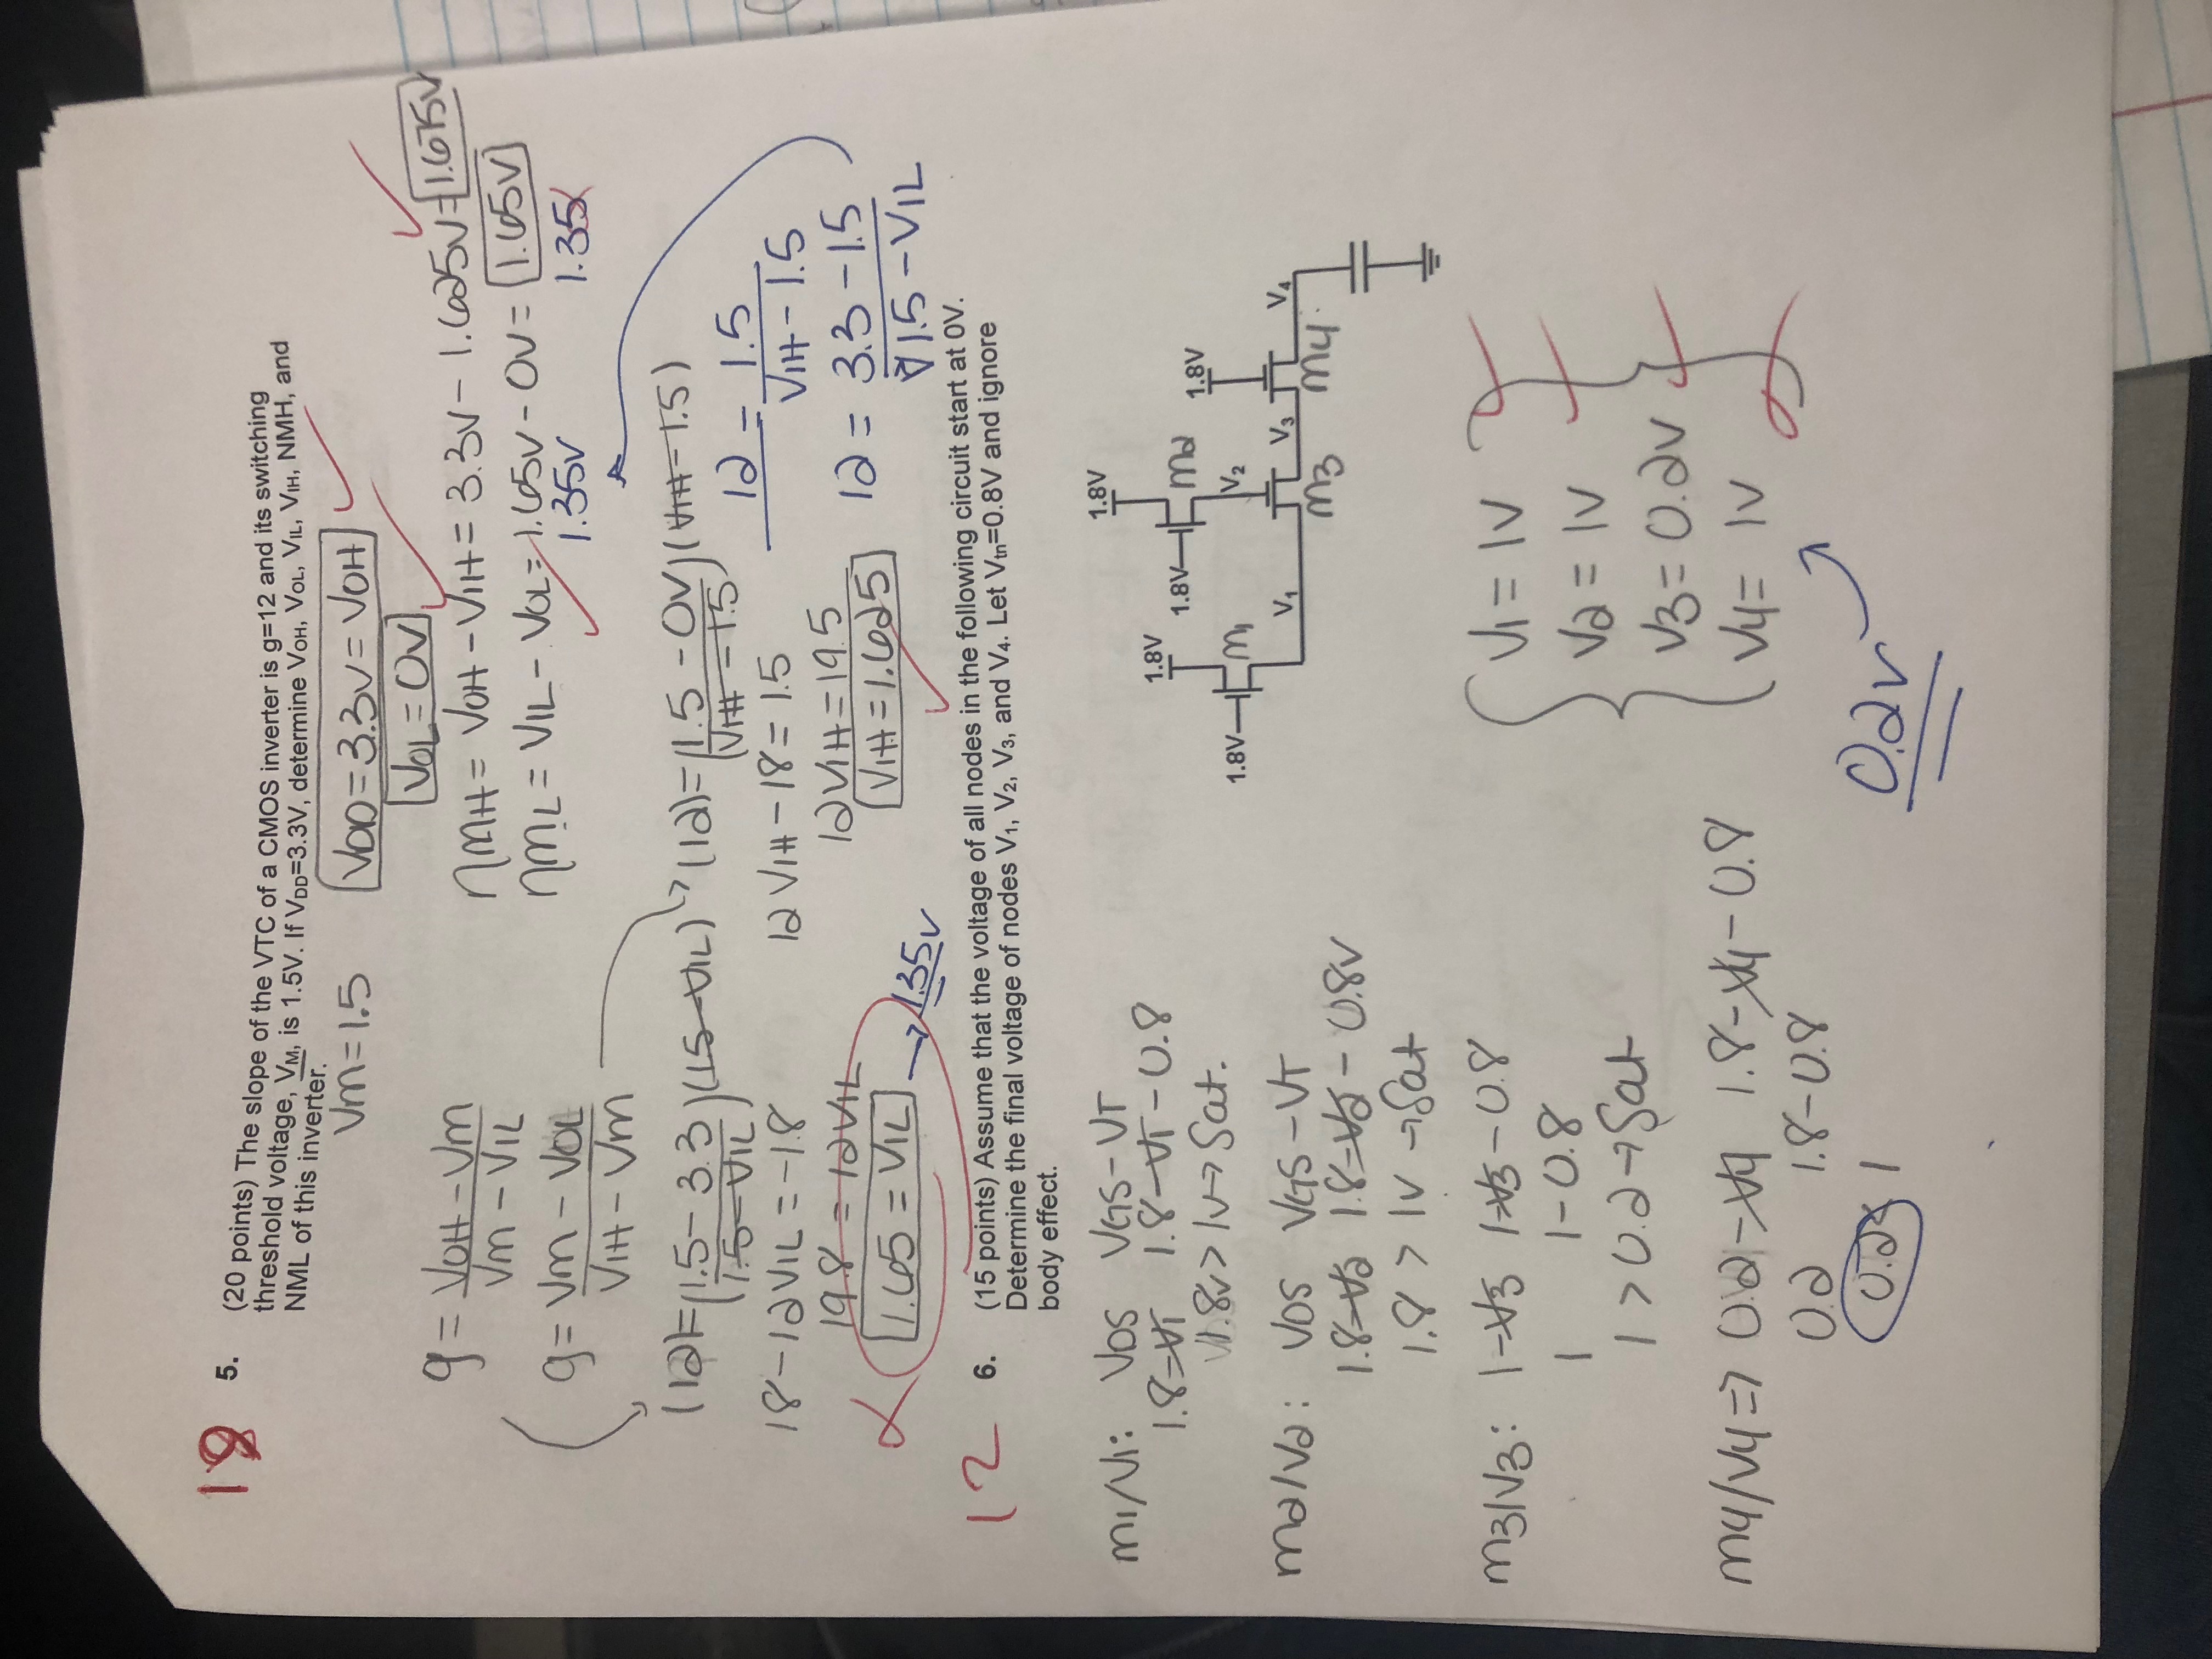 18
5. (20 points) The slope of the VTC of a CMOS inverter is g=12 and its switching
threshold voltage, VM, is 1.5V. If VDD=3.3V, determine VOH, VOL, VIL, VIH, NMH, and
NML of this inverter.
Vm=1.5
VDD=3.3V=VOH
VOL=0V
g= VOH-Vm / Vm-VIL
nmH= VOH-VIH= 3.3V- 1.625V= 1.675V
nmL= VIL- VOL= 1.65V-0V= 1.65V
1.35V 1.35
g= Vm-VOL / VIH-Vm
(12)=(1.5-3.3 / 1.5-VIL)(1.5-VIL)
18-12VIL=-1.8
19.8 = 12VIL
1.65=VIL → 1.35V
(12)=(1.5-0V / VIH-1.5)(VIH-1.5)
12VIH-18=1.5
12VIH=19.5
VIH=1.625
12 = 1.5 / VIH-1.5
12 = 3.3-1.5 / 1.5-VIL
12
6. (15 points) Assume that the voltage of all nodes in the following circuit start at 0V.
Determine the final voltage of nodes V1, V2, V3, and V4. Let Vtn=0.8V and ignore
body effect.
m1/V1: VDS VGS-VT
1.8-V1 1.8-V1-0.8
1.8V>1V→Sat.
m2/V2: VDS VGS-VT
1.8-V2 1.8-V2-0.8V
1.8>1V→Sat
m3/V3: 1-V3 1-V3-0.8
1 1-0.8
1>0.2→Sat
m4/V4⇒ 0.2-V4 1.8-V4-0.8
0.2 1.8-0.8
0.2< 1
1.8V
1.8V
1.8V m2
1.8V
1.8V m1
V2
V1
V3
V4
m3
m4
V1= 1V
V2= 1V
V3= 0.2V
V4= 1V
0.2V